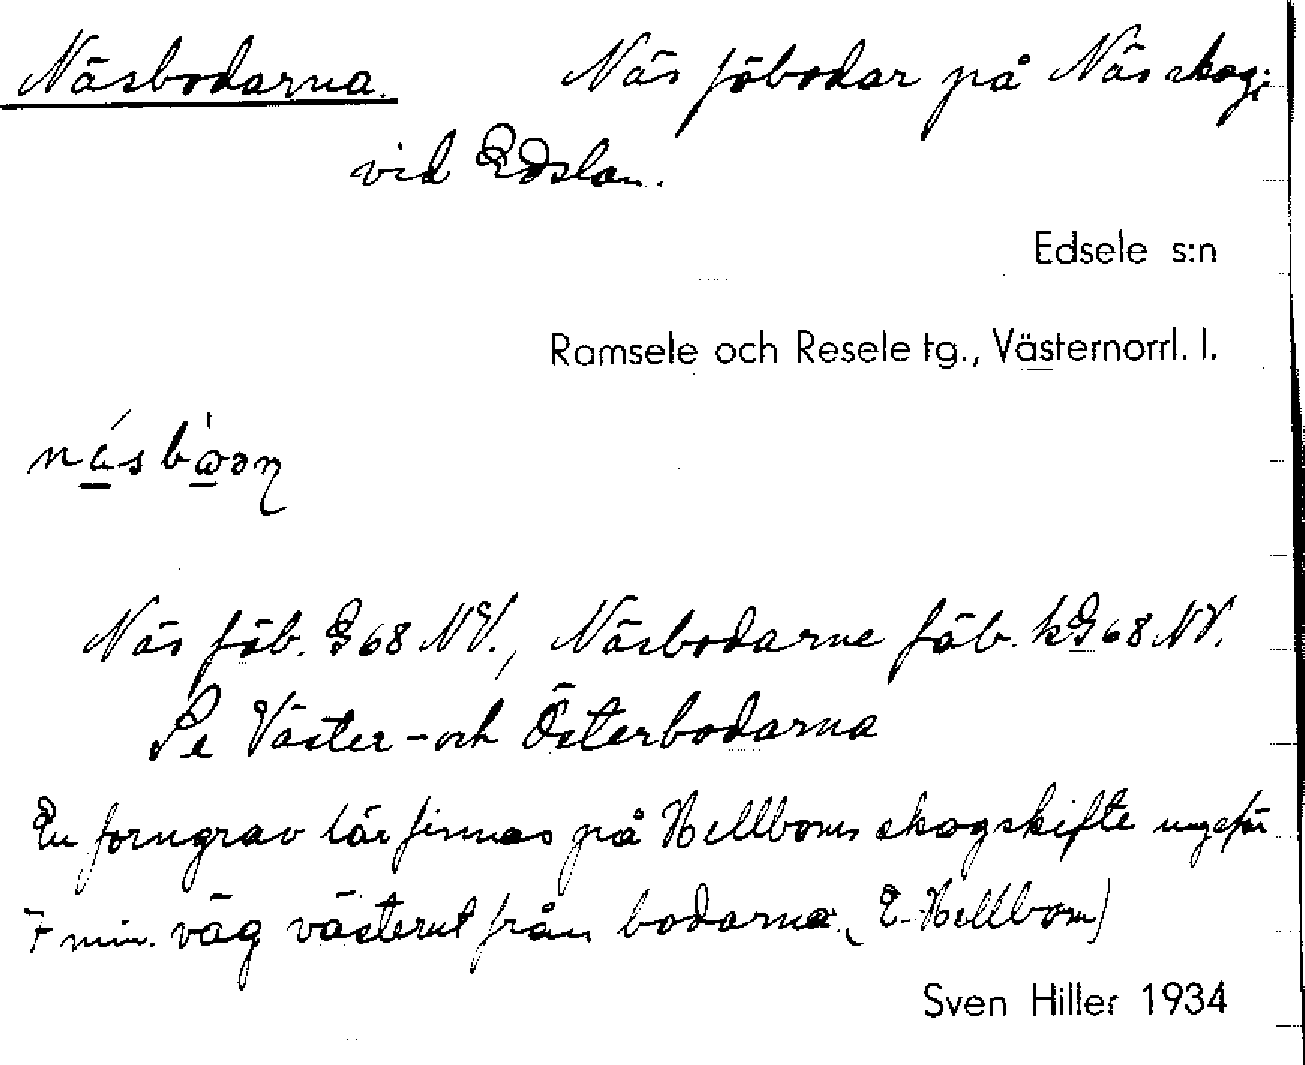 Näsbodarna. Näs fäbodar på Näs skog;
vid Edslan.
Edsele s:n
Ramsele och Resele tg., Västernorrl. l.
Näs fäb. G 68 NV., Näsbodarne fäb. k G 68 NV.
Se Väster- och Österbodarna
En forngrav lär finnas på Hellboms skogskifte ungefär
7 min. väg västerut från bodarna. (E. Hellbom)
Sven Hiller 1934